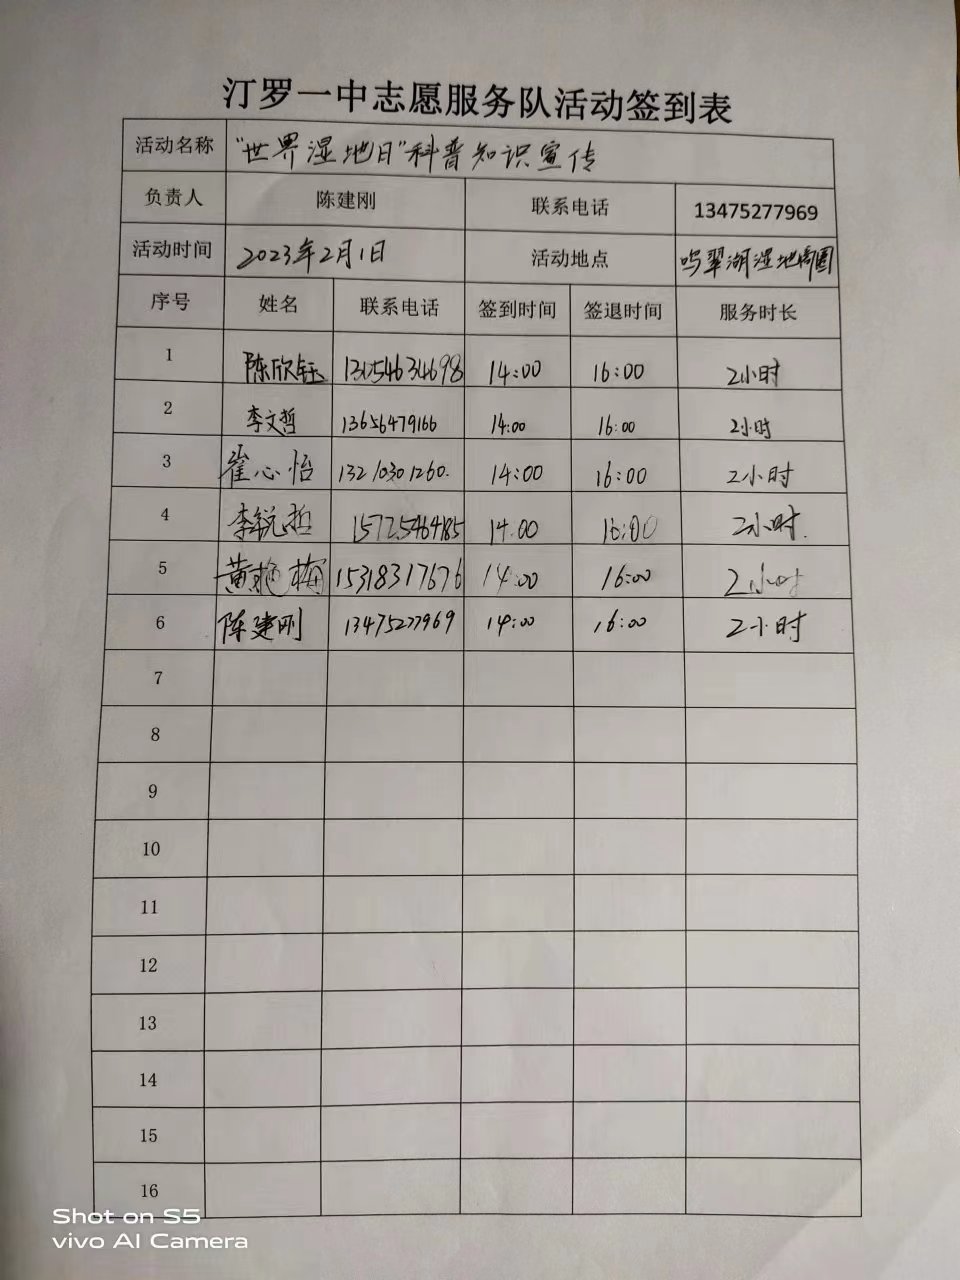 汀罗一中志愿服务队活动签到表
活动名称 "世界湿地日"科普知识宣传
负责人 陈建刚 联系电话 13475277969
活动时间 2023年2月1日 活动地点 鸣翠湖湿地
序号 姓名 联系电话 签到时间 签退时间 服务时长
1 陈欣钰 13054634698 14:00 16:00 2小时
2 李文哲 13656479166 14:00 16:00 2小时
3 崔心怡 13210301260. 14:00 16:00 2小时
4 李锐哲 15725464185 14:00 16:00 2小时.
5 黄艳梅 15318317676 14:00 16:00 2小时
6 陈建刚 13475277969 14:00 16:00 2小时
7
8
9
10
11
12
13
14
15
16
Shot on S5
vivo AI Camera